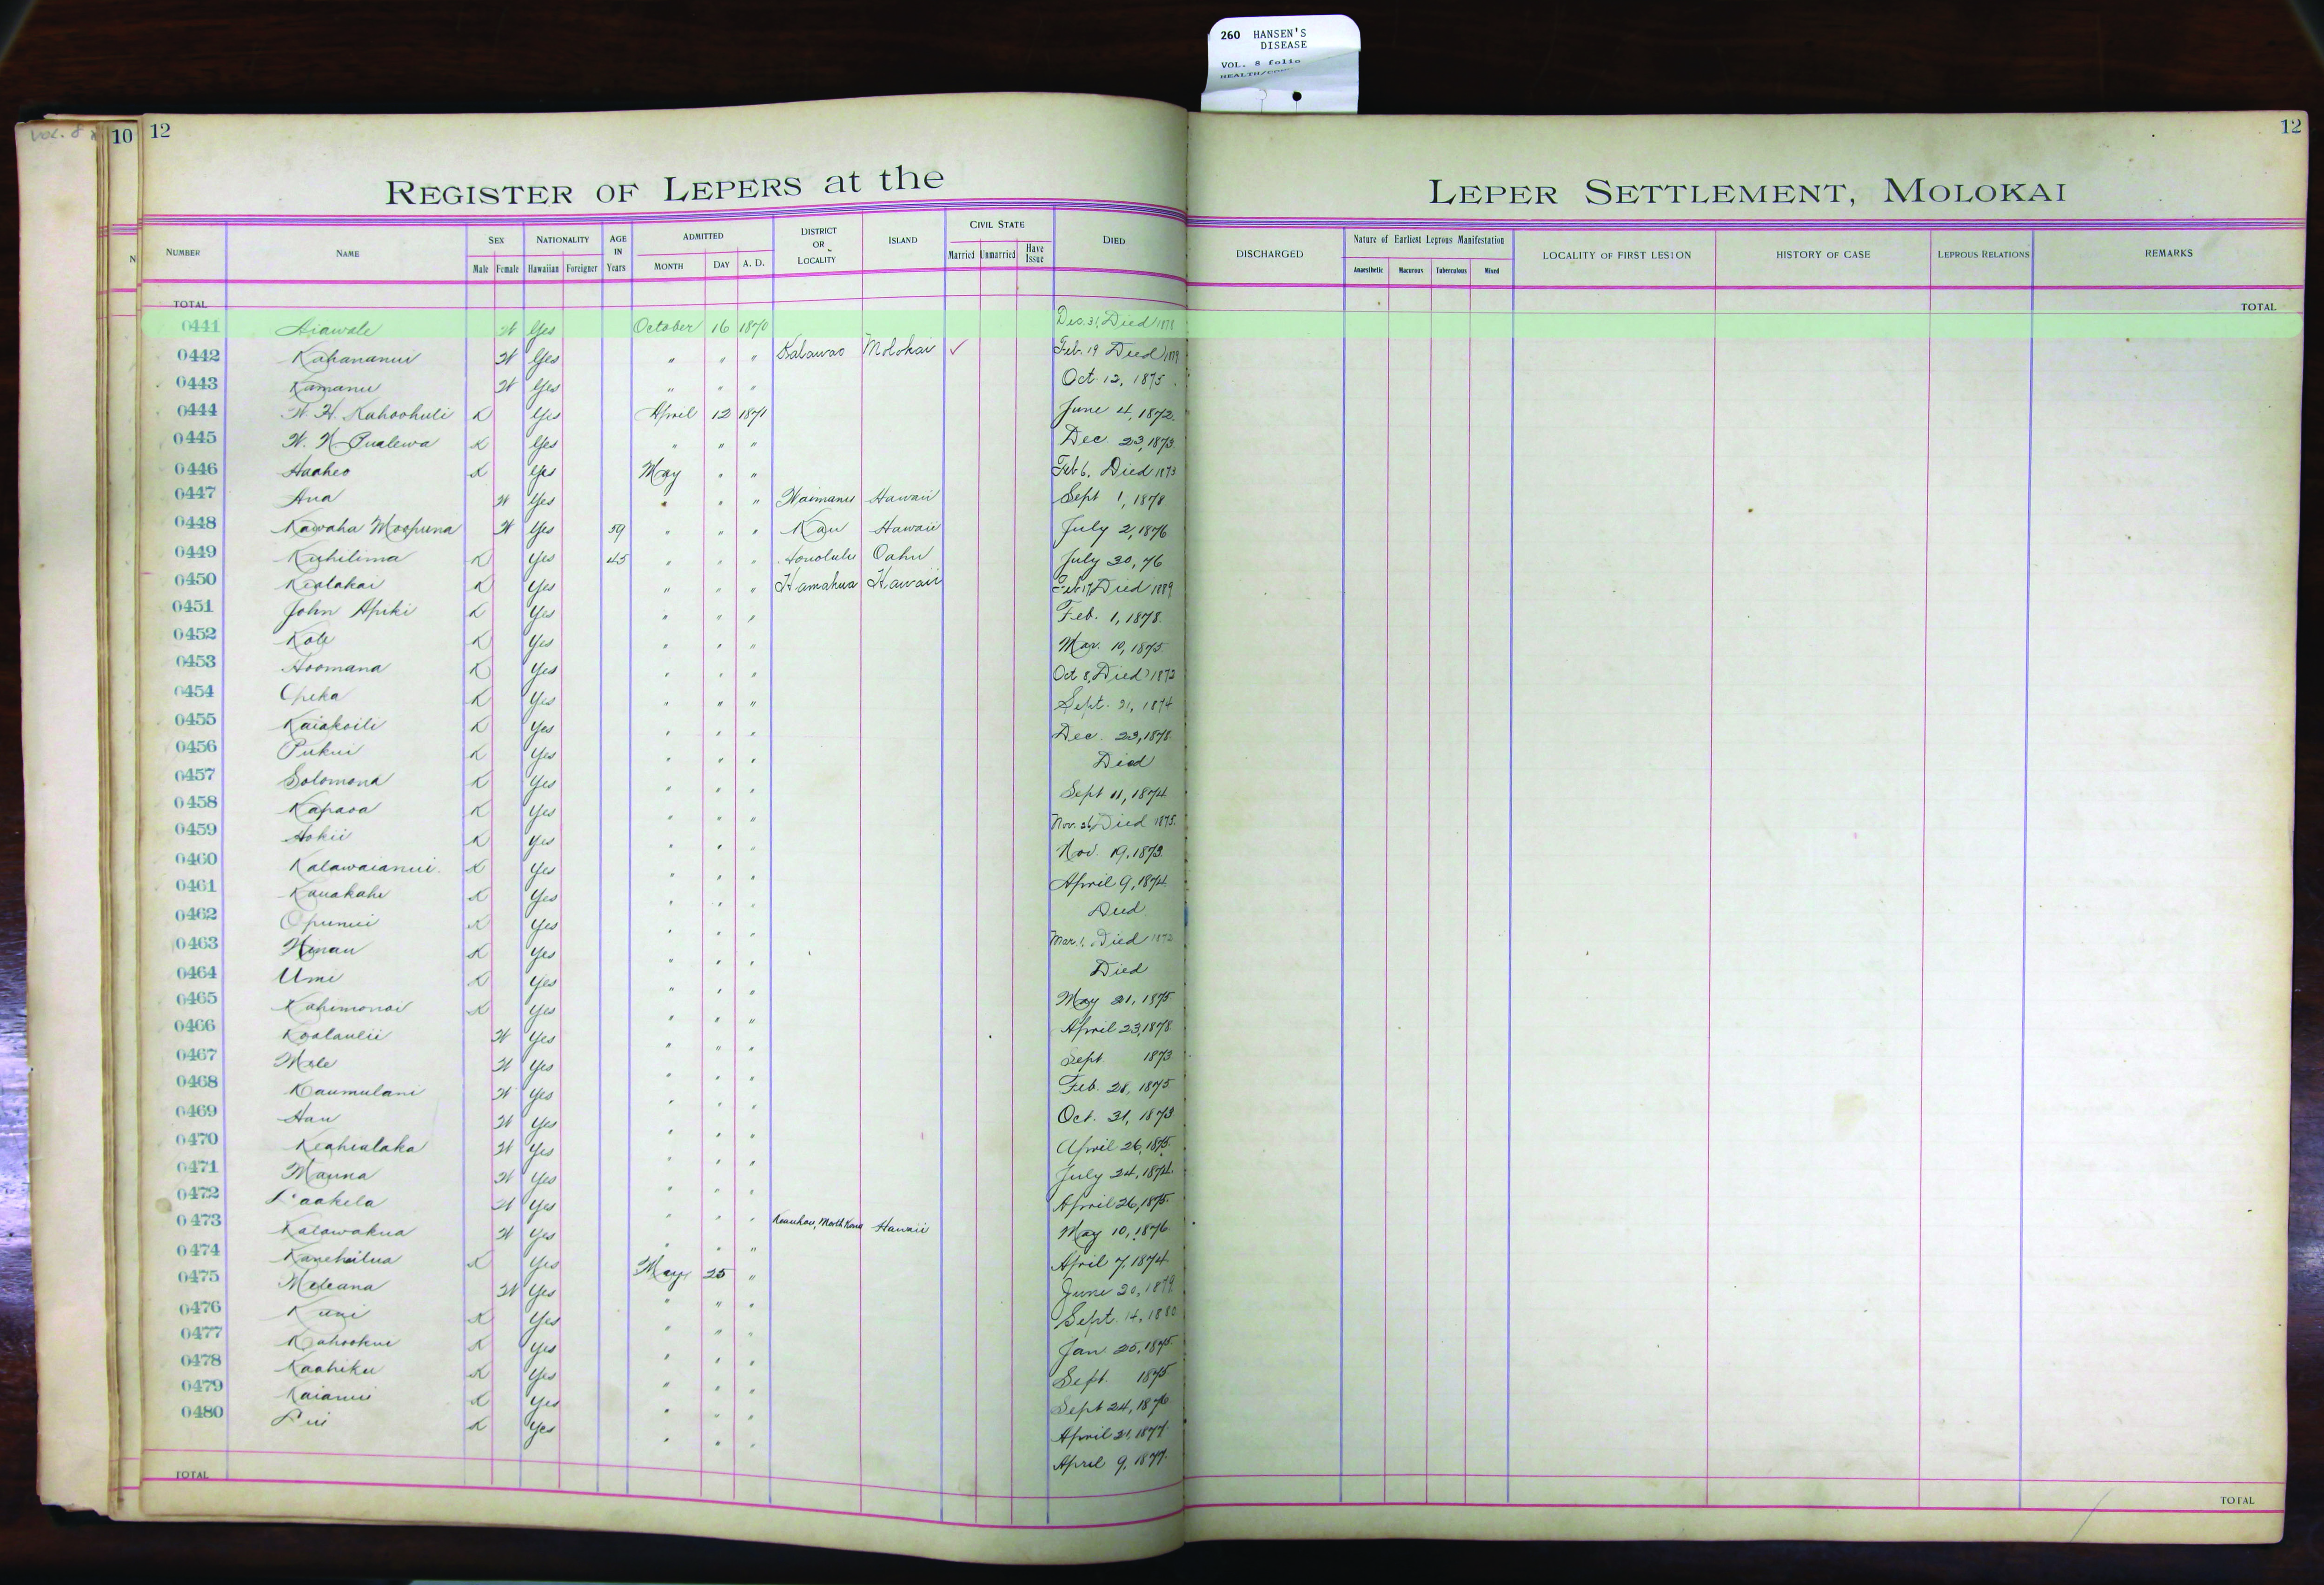 260 HANSEN'S
DISEASE
VOL. 8 folio
VOL. 8
10 12 12
REGISTER OF LEPERS at the LEPER SETTLEMENT, MOLOKAI
NUMBER NAME SEX Male Female NATIONALITY Hawaiian Foreigner AGE IN Years ADMITTED MONTH DAY A. D. DISTRICT OR LOCALITY ISLAND CIVIL STATE Married Unmarried Have Issue DIED DISCHARGED Nature of Earliest Leprous Manifestation Anaesthetic Macurous Tuberculous Mixed LOCALITY OF FIRST LESION HISTORY OF CASE LEPROUS RELATIONS REMARKS
TOTAL TOTAL
0441 Aiawale W Yes October 16 1870 Dec. 31, Died 1871
0442 Kahananui W Yes " " " Kalawao Molokai ✓ Feb. 19 Died 1879
0443 Kamanu W Yes " " " Oct. 12, 1875
0444 W. H. Kahoohuli K Yes April 12 1871 June 4, 1872.
0445 W. N. Pualewa K Yes " " " Dec 23, 1873.
0446 Haaheo K Yes May " " Feb 6, Died 1873
0447 Ana W Yes " " " Waimanu Hawaii Sept 1, 1878
0448 Kawaha Moopuna W Yes 59 " " " Kau Hawaii July 2, 1876
0449 Kuhilima K Yes 45 " " " Honolulu Oahu July 30, 76
0450 Kealakai K Yes " " " Hamakua Hawaii Feb 17, Died 1889
0451 John Apiki K Yes " " " Feb. 1, 1878.
0452 Kole K Yes " " " Mar. 10, 1875.
0453 Hoomana K Yes " " " Oct 8, Died 1873
0454 Opeka K Yes " " " Sept. 21, 1874
0455 Kaiakoili K Yes " " " Dec. 23, 1878.
0456 Pukui K Yes " " " Died
0457 Solomona K Yes " " " Sept 11, 1874
0458 Kapaoa K Yes " " " Nov. 26, Died 1875.
0459 Hokii K Yes " " " Nov. 19, 1873.
0460 Kalawaianui K Yes " " " April 9, 1874.
0461 Kauakahi K Yes " " " Died
0462 Opunui K Yes " " " Mar. 1, Died 1873
0463 Hinau K Yes " " " Died
0464 Umi K Yes " " " May 21, 1875
0465 Kahimonoi K Yes " " " April 23, 1878.
0466 Koolaulii W Yes " " " Sept 1873
0467 Mele W Yes " " " Feb. 28, 1875.
0468 Kaumulani W Yes " " " Oct. 31, 1873
0469 Hau W Yes " " " April 26, 1875.
0470 Keahialaka W Yes " " " July 24, 1874.
0471 Mauna W Yes " " " April 26, 1875.
0472 Paakela W Yes " " " Keauhou, North Kona Hawaii May 10, 1876
0473 Kalawakua W Yes " " " April 7, 1874
0474 Kanehailua K Yes May 25 " June 20, 1879
0475 Meleana W Yes " " " Sept. 14, 1880
0476 Kuni K Yes " " " Jan 25, 1875
0477 Kahookui K Yes " " " Sept. 1875
0478 Kaahiku K Yes " " " Sept 24, 1876
0479 Kaianui K Yes " " " April 21, 1877.
0480 Pui K Yes " " " April 9, 1877.
TOTAL TOTAL